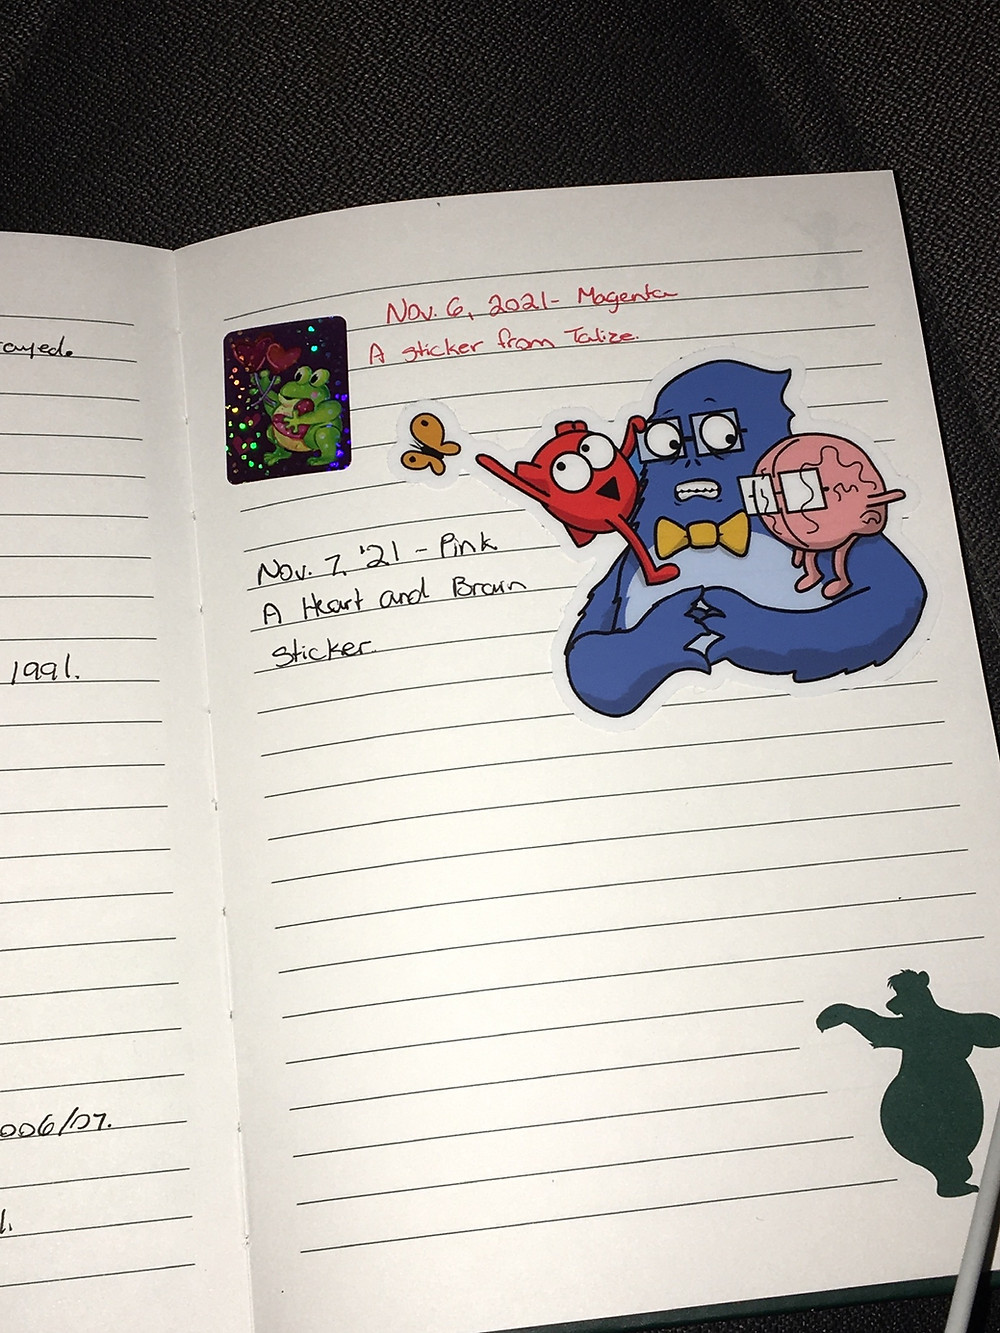 1991.
006/07.
Nov. 6, 2021- Magenta
A sticker from Talize.
Nov. 7, '21 - Pink
A Heart and Brain
sticker.